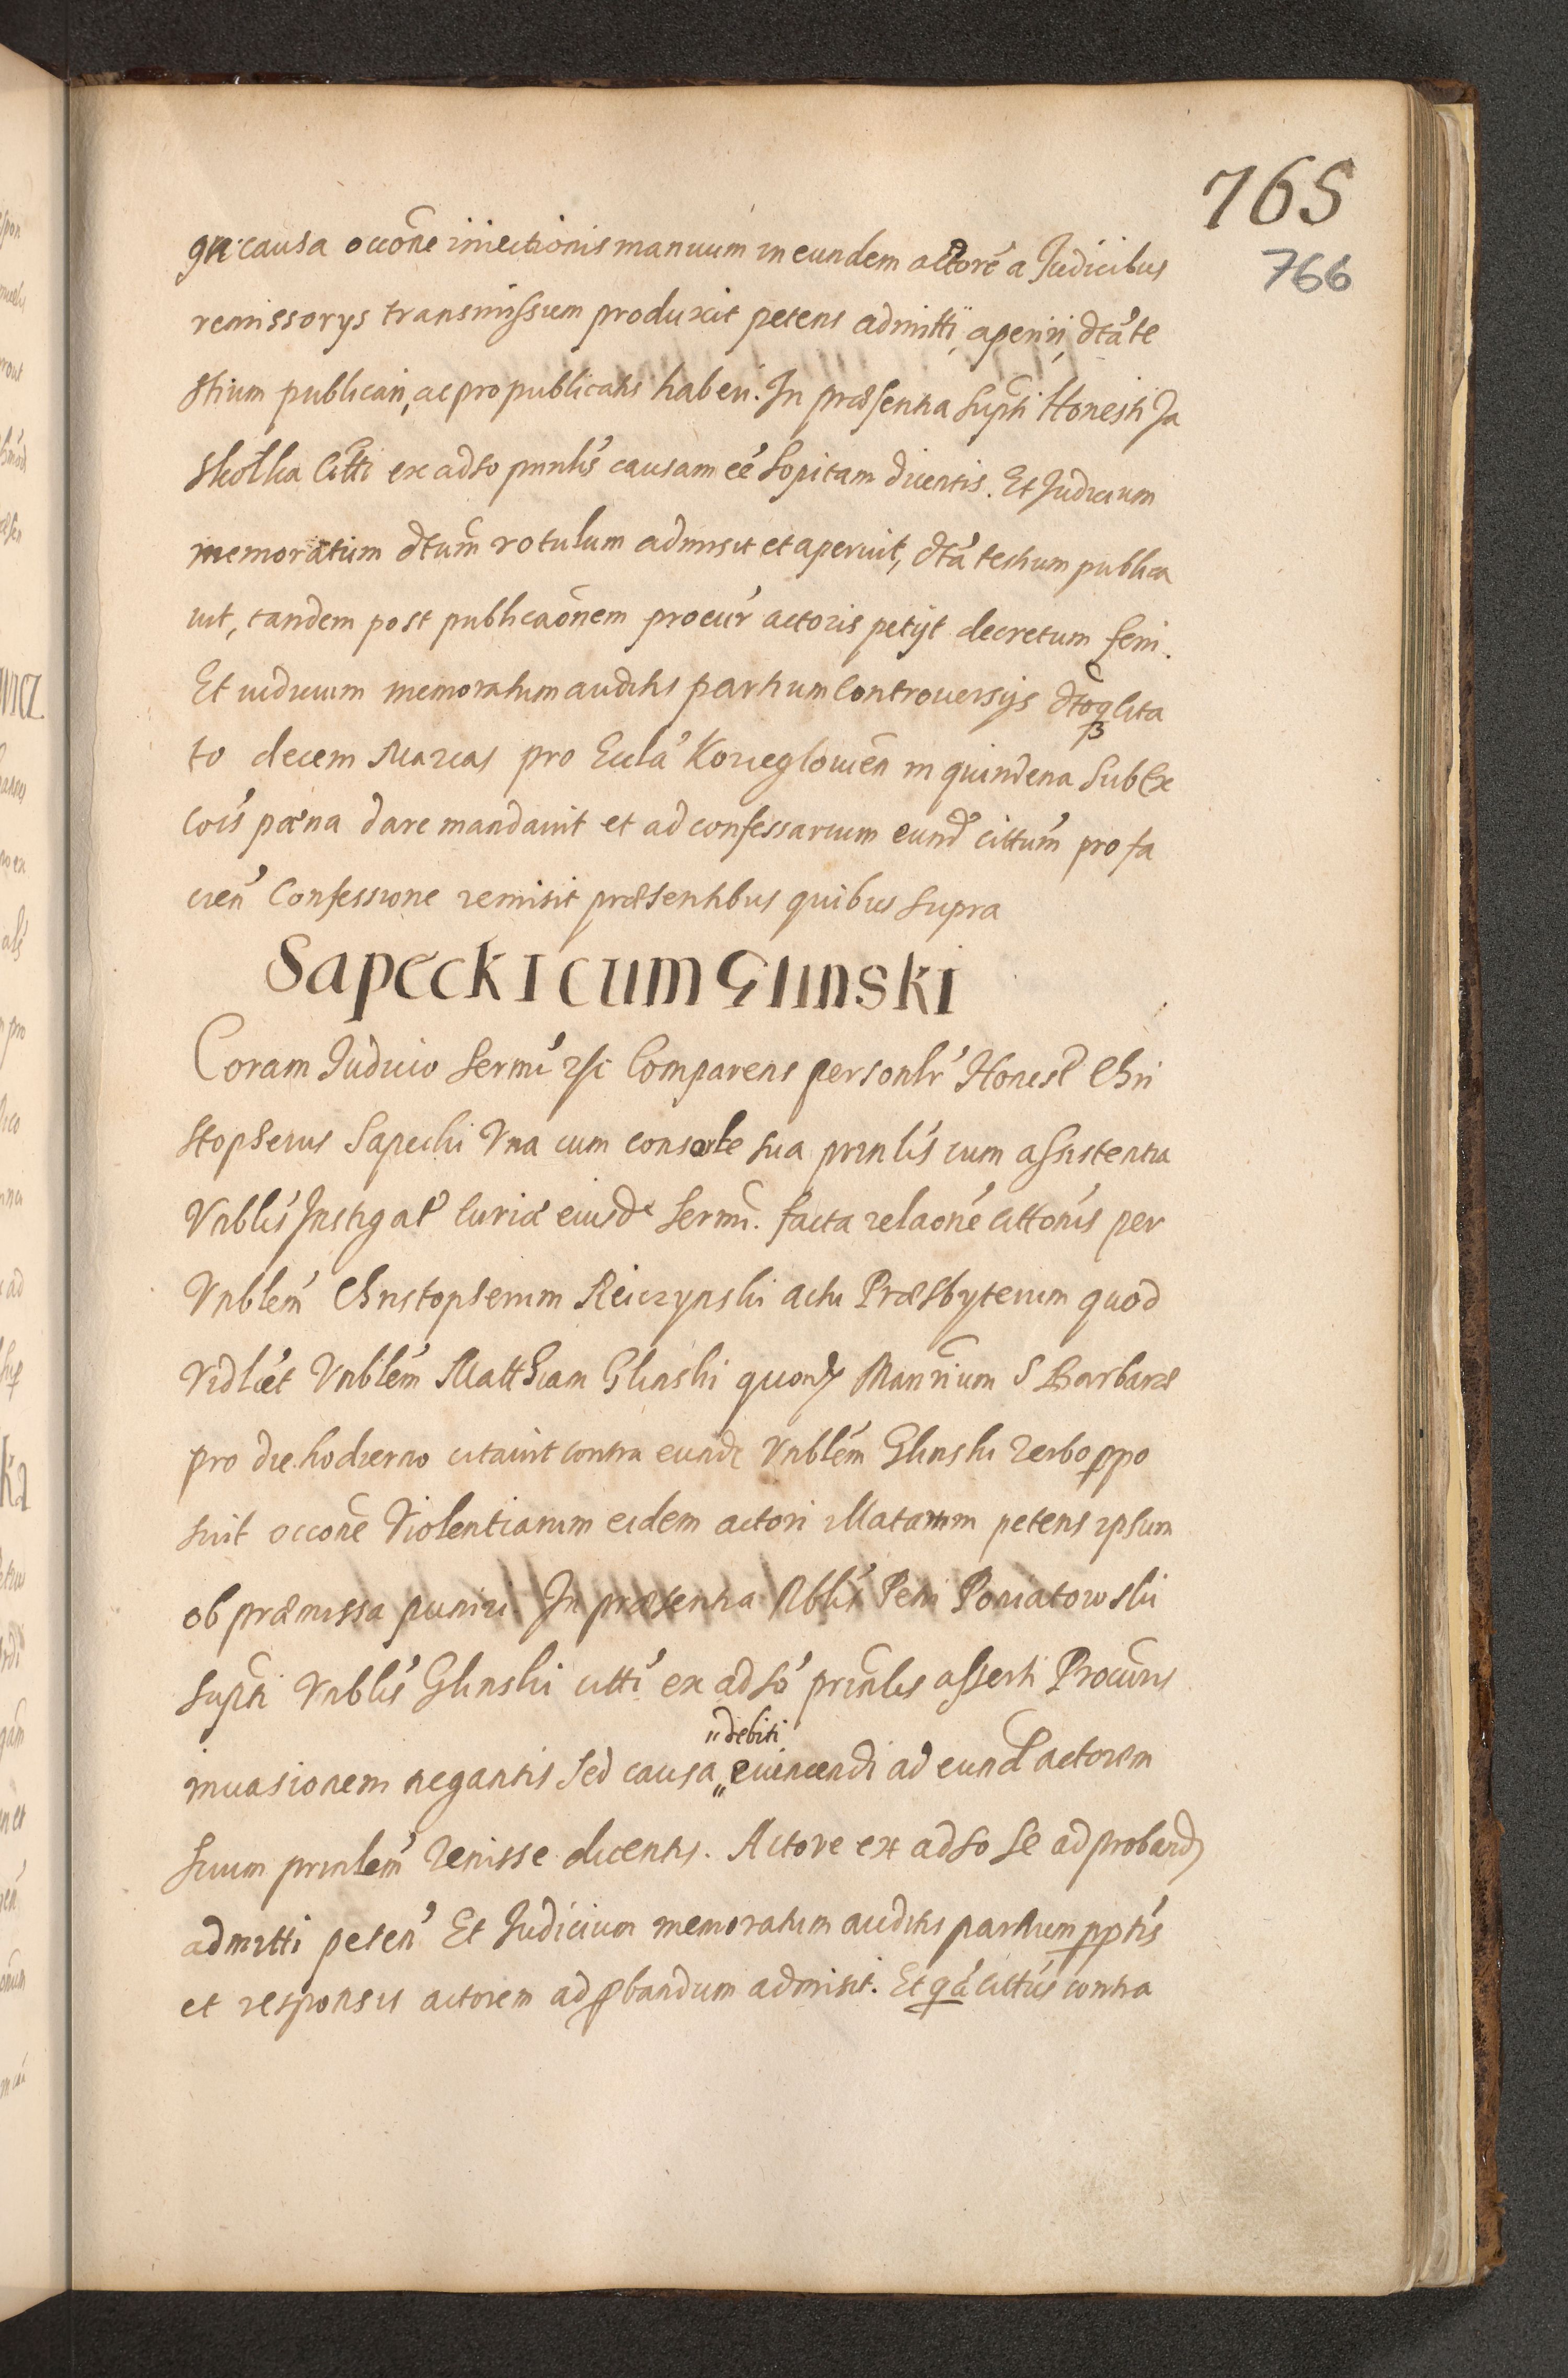 765
766
gn: causa occone iniectionis manuum in eundem actore a Judicibus
remissorys transmissum produxit petens admitti aperiri, dta te
stium publicari, ac pro publicatis haberi. In præsentia supti Honesti Ja
skolka Citti ex adso pnnlis causam eé sopitam dicentis. Et Judicium
memoratum dtum rotulum admisit et aperuit, dta testium publica
uit, tandem post publicaonem procur actoris petijt decretum ferri.
Et iudicium memoratum auditis partium controversijs dtoq cita
to decem Marcas pro Eccla Kozieglowien in quindena sub Ex
cois pæna dare mandavit et ad confessarium eund cittum pro fa
cien Confessione remisit præsentibus quibus supra
Sapecki cum Glinski
Coram Judicio Sermi Comparens personlr Honest Chri
stopherus Sapecki Una cum consorte sua prinlis cum assistentia
Vnblis Instigat Curiæ eiusd Sermi. facta relaone cittonis per
Vnblem Christopherum Reiczynski actu Præsbyterum quod
Vidlict Vnblem Matthiam Glinski quond Mannum S Barbaræ
pro die hodierno citavit contra eund Vnblem Glinski verbo ppo
suit occone Violentiarum eidem actori illatarum petens ipsum
ob præmissa puniri. In præsentia Nblis Petri Poniatowski
supti Vnblis Glinski citti ex adso prinlis asserti Procuris
invasionem negantis sed causa „ evincendi ad eund actorem
„ debiti
suum prinlem venisse dicentis. Actore ex adso se ad proband
admitti peten Et Judicium memoratum auditis partium pptis
et responsis actorem ad pbandum admisit. Et qa cittus contra